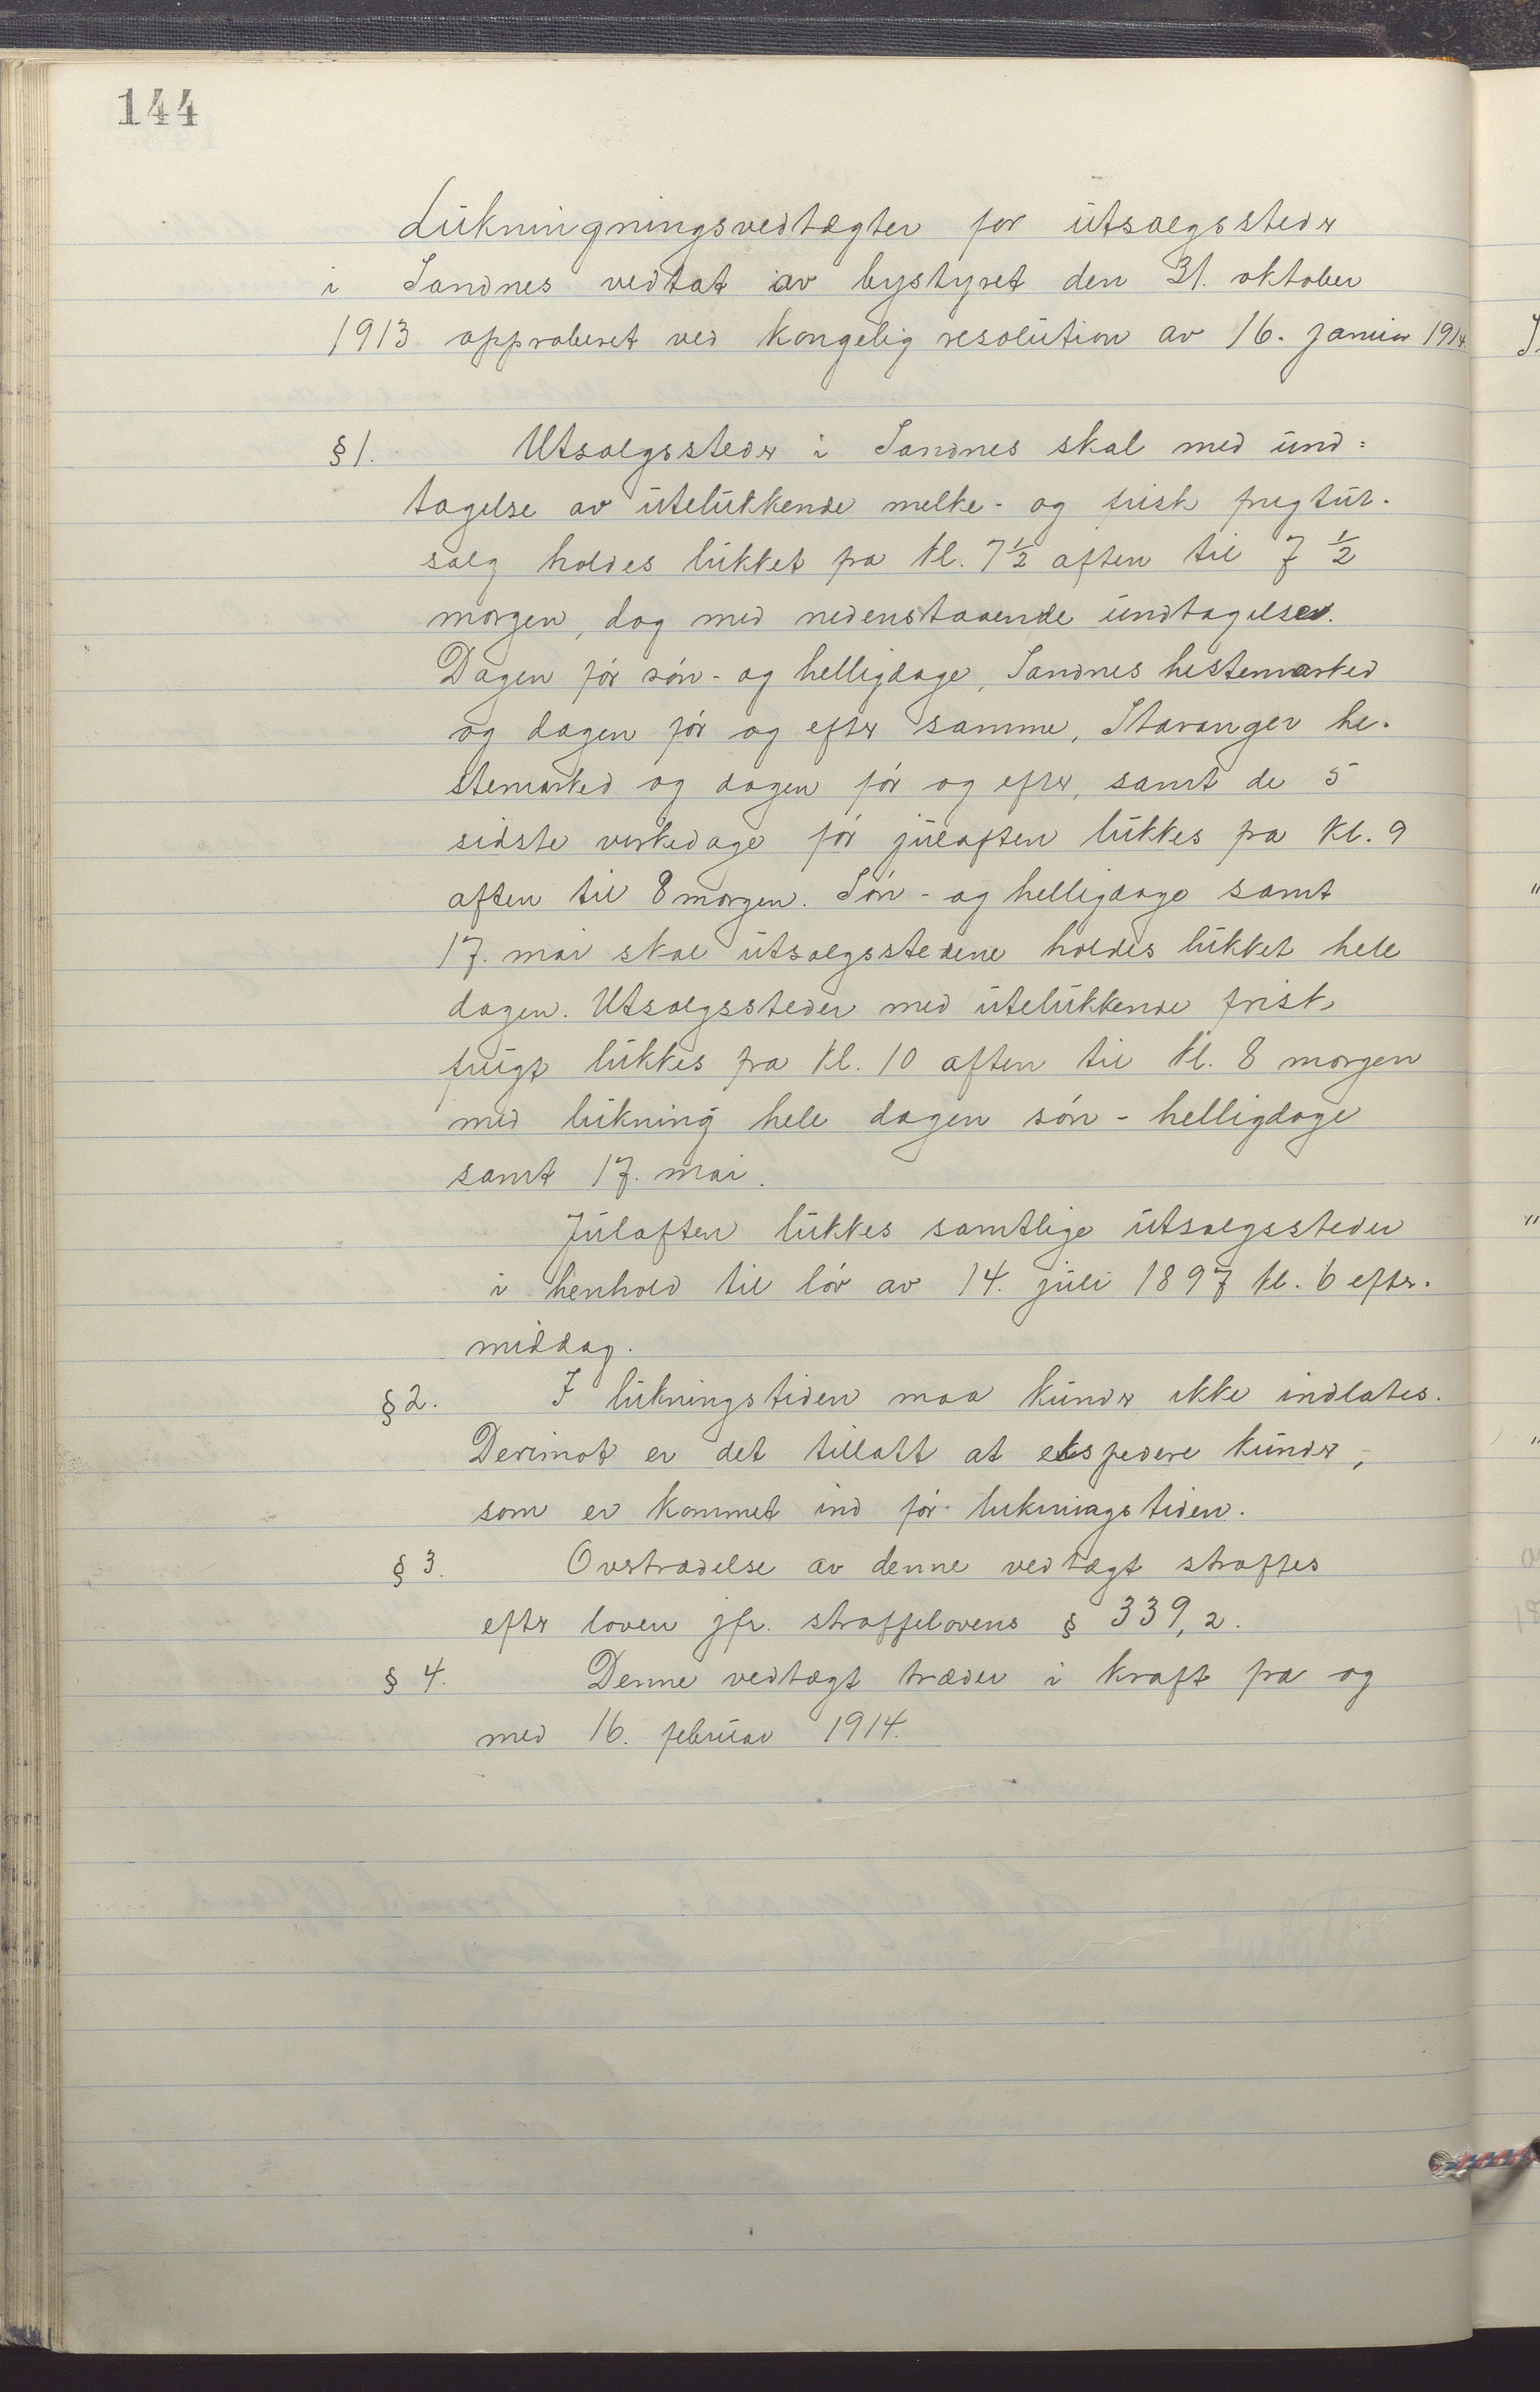 144
Lukningningsvedtægter for utsalgssteder
i Sandnes vedtat av bystyret den 31. oktober
1913 approberet ved kongelig resolution av 16. januar 1914.
§ 1. Utsalgssteder i Sandnes skal med und=
tagelse av utelukkende melke- og frisk frugtut-
salg holdes lukket fra kl. 7 1/2 aften til 7 1/2
morgen, dog med nedenstaaende undtagelser.
Dagen før søn- og helligdage, Sandnes hestemarked
og dagen før og efter samme, Stavanger he-
stemarked og dagen før og efter, samt de 5
sidste virkedage før julaften lukkes fra kl. 9
aften til 8 morgen. Søn- og helligdage samt
17. mai skal utsalgsstedene holdes lukket hele
dagen. Utsalgssteder med utelukkende frisk
frugt lukkes fra kl. 10 aften til kl. 8 morgen
med lukning hele dagen søn- helligdage
samt 17. mai.
Julaften lukkes samtlige utsalgssteder
i henhold til lov av 14. juli 1897 kl. 6 efter-
middag.
§ 2. I lukningstiden maa kunder ikke indlates.
Derimot er det tillatt at ekspedere kunder,
som er kommet ind før lukningstiden.
§ 3. Overtrædelse av denne vedtægt straffes
efter loven jfr. straffelovens § 339, 2.
§ 4. Denne vedtægt træder i kraft fra og
med 16. februar 1914.